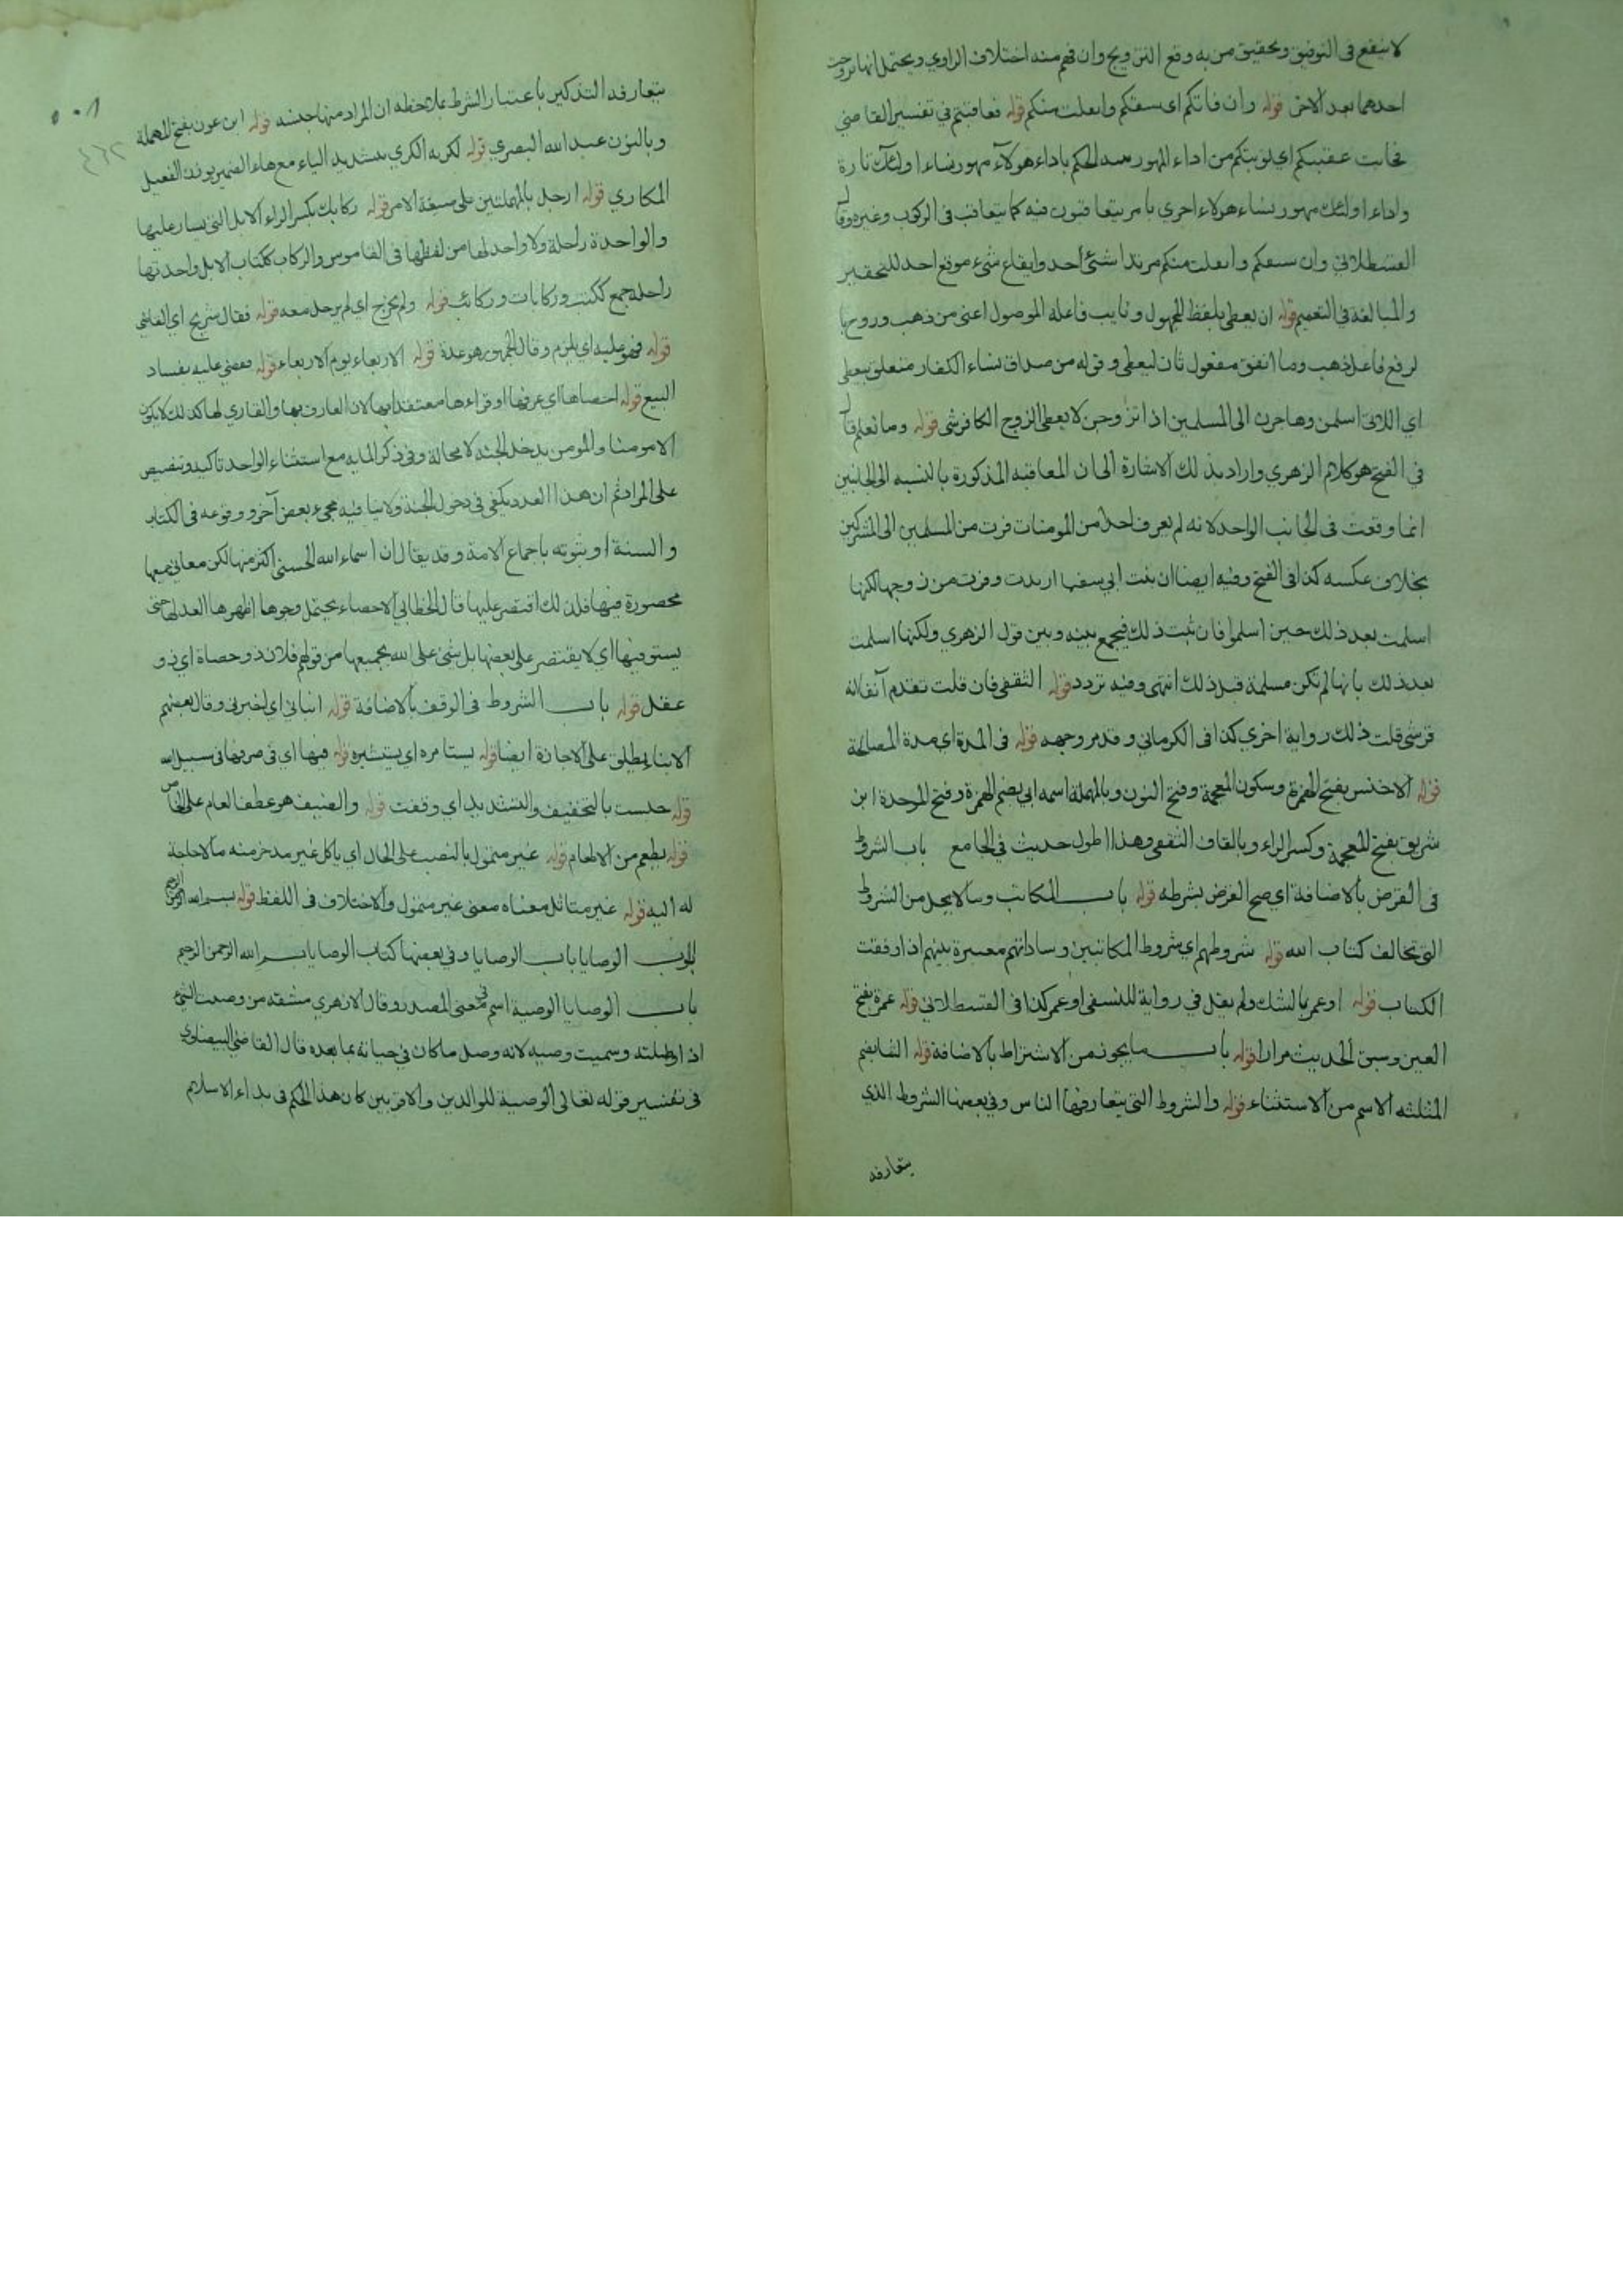 لا ينفع فى التوفيق وتحقيق من به وقع التزويج وان فهم منه اختلاف الراوي ويحتمل انها تزوجت
احدهما بعد الاخر قوله وان فاتكم اى سبقكم وانفلت منكم قوله فعاقبتم في تفسير القاضي
فجاءت عقبتكم اي نوبتكم من اداء المهور شبه الحكم باداء هولآء مهور نساء اولئك تارة
واداء اولئك مهور نساء هولاء اخري بامر يتعاقبون فيه كما يتعاقب فى الركوب وغيره وقال
القسطلاني وان سبقكم وانفلت منكم مرتدا شئ احد وايقاع شىء موقع احد للتحقير
والمبالغة في التعميم قوله ان يعطى بلفظ المجهول ونايب فاعله الموصول اعنى من ذهب وروح با
لرفع فاعل ذهب وما انفق مفعول ثان ليعطى وقوله من صداق نساء الكفار متعلق بيعطى
اي اللاتي اسلمن وهاجرن الى المسلمين اذا تزوجن لا يعطى الزوج الكافر شى قوله وما نعلم قال
في الفتح هو كلام الزهري واراد بذلك الاشارة الى ان المعاقبه المذكورة بالنسبه الى الجانبين
انما وقعت فى الجانب الواحد لانه لم يعرف احدا من المومنات فرت من المسلمين الى المشركين
بخلاف عكسه كذا فى الفتح وفيه ايضا ان بنت ابي سفيا ارتدت وفرت من زوجها لكنها
اسلمت بعد ذلك حين اسلموا فان ثبت ذلك فيجمع بينه وبين قول الزهري ولكنها اسلمت
بعد ذلك بانها لم تكن مسلمة قبل ذلك انتهى وفيه تردد قوله الثقفى فان قلت تقدم آنفا انه
قرشى قلت ذلك رواية اخري كذا فى الكرماني وقد مر وجهه قوله فى المدة اي مدة المصالحة
قوله الاخنس بفتح الهمزة وسكون المعجمة وفتح النون وبالمهملة اسمه ابي بضم الهمزة وفتح الموحدة ابن
شريق بفتح المعجمة وكسر الراء وبالقاف الثقفى وهذا اطول حديث في الجامع باب الشروط
فى القرض بالاضافة اي صح القرض بشرطه قوله باب المكاتب وما لا يحل من الشروط
التى تخالف كتاب الله قوله شروطهم اي شروط المكاتبين وساداتهم معتبرة بينهم اذا وفقت
الكتاب قوله او عمر بالشك ولم يقل في رواية للنسفى او عمر كذا فى القسطلاني قوله عمرة بفتح
العين وسبق الحديث مرارا قوله باب ما يجوز من الاشتراط بالاضافة قوله الثنا بضم
المثلثه الاسم من الاستثناء قوله والشروط التى يتعارفها الناس وفي بعضها الشروط الذي
يتعارفه
٥٠٨
٤٦٢
يتعارفه التذكير باعتبار الشرط بملاحظه ان المراد منها جنسه قوله ابن عون بفتح المهملة
وبالنون عبد الله البصري قوله لكريه الكري بتشديد الياء مع هاء الضمير بوزن الفعيل
المكاري قوله ارحل بالمهملتين على صيغة الامر قوله ركابك بكسر الراء الابل التى يسار عليها
والواحدة راحلة ولا واحد لها من لفظها فى القاموس والركاب ككتاب الابل واحدتها
راحلة جمع ككتب وركابات وركائب قوله ولم يخرج اي لم يرحل معه قوله فقال شريح اي القاضي
قوله فهو عليه اي يلزم وقال الجمهور هو عدة قوله الاربعاء يوم الاربعاء قوله فقضى عليه بفساد
البيع قوله احصاها اي عرفها او قراءها معتقدا بها لان العارف بها والقاري لها كذلك لا يكون
الا مومنا والمومن يدخل الجنة لا محالة وفي ذكر المايه مع استثناء الواحد تاكيد وتنصيص
على المراد ثم ان هذا العدد يكفى فى دخول الجنة ولا ينافيه مجىء بعض آخر ووقوعه فى الكتاب
والسنة او ثبوته باجماع الامة وقد يقال ان اسماء الله الحسنى اكثر منها لكن معاني جميعها
محصورة فيها فلذلك اقتصر عليها قال الخطابي الاحصاء يحتمل وجوها اظهرها العد لها حتى
يستوفيها اي لا يقتصر على بعضها بل يثنى على الله بجميعها من قولهم فلان ذو حصاة اي ذو
عقل قوله باب الشروط فى الوقف بالاضافة قوله انباني اي اخبرنى وقال بعضهم
الانباء يطلق على الاجازة ايضا قوله يستامره اى يستشيره قوله فيها اى فى صرفها فى سبيل الله
قوله حبست بالتخفيف والتشديد اي وقفت قوله والضيف هو عطف العام على الخاص
قوله يطعم من الاطعام قوله غير متمول بالنصب على الحال اي ياكل غير مدخر منه ما لا حاجة
له اليه قوله غير متاثل معناه معنى غير متمول والاختلاف فى اللفظ قوله بسم الله الرحمن الرحيم
الوصايا باب الوصايا وفي بعضها كتاب الوصايا بسم الله الرحمن الرحيم
باب الوصايا الوصية اسم فى معنى المصدر وقال الازهري مشتقه من وصيت الشئ
اذا وصلته وسميت وصيه لانه وصل ما كان في حياته بما بعده قال القاضى البيضاوي
فى تفسير قوله تعالى الوصية للوالدين والاقربين كان هذا الحكم فى بداء الاسلام